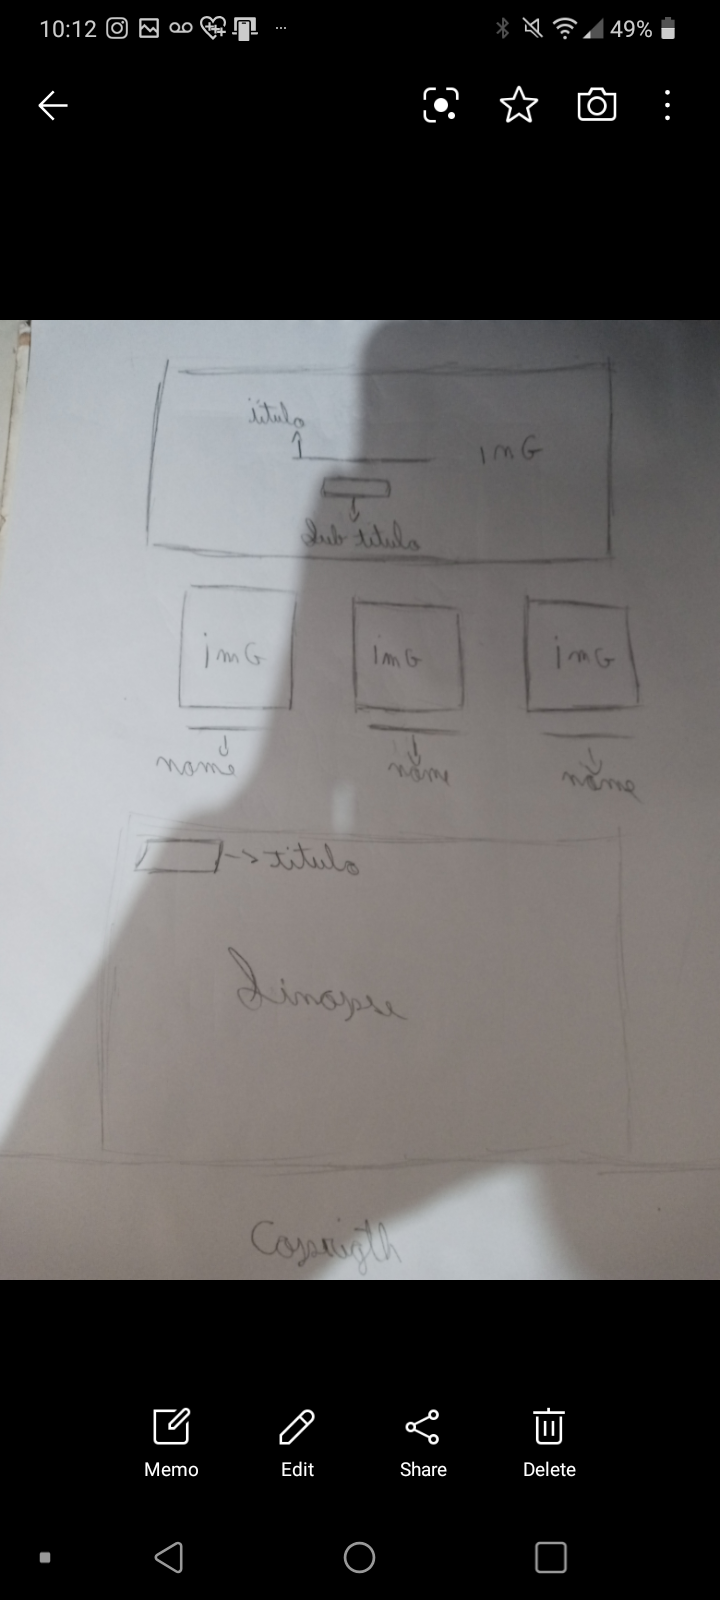 10:12
49%
titulo
imG
Sub titulo
imG imG imG
nome nome nome
titulo
Sinopse
Copyrigth
Memo Edit Share Delete